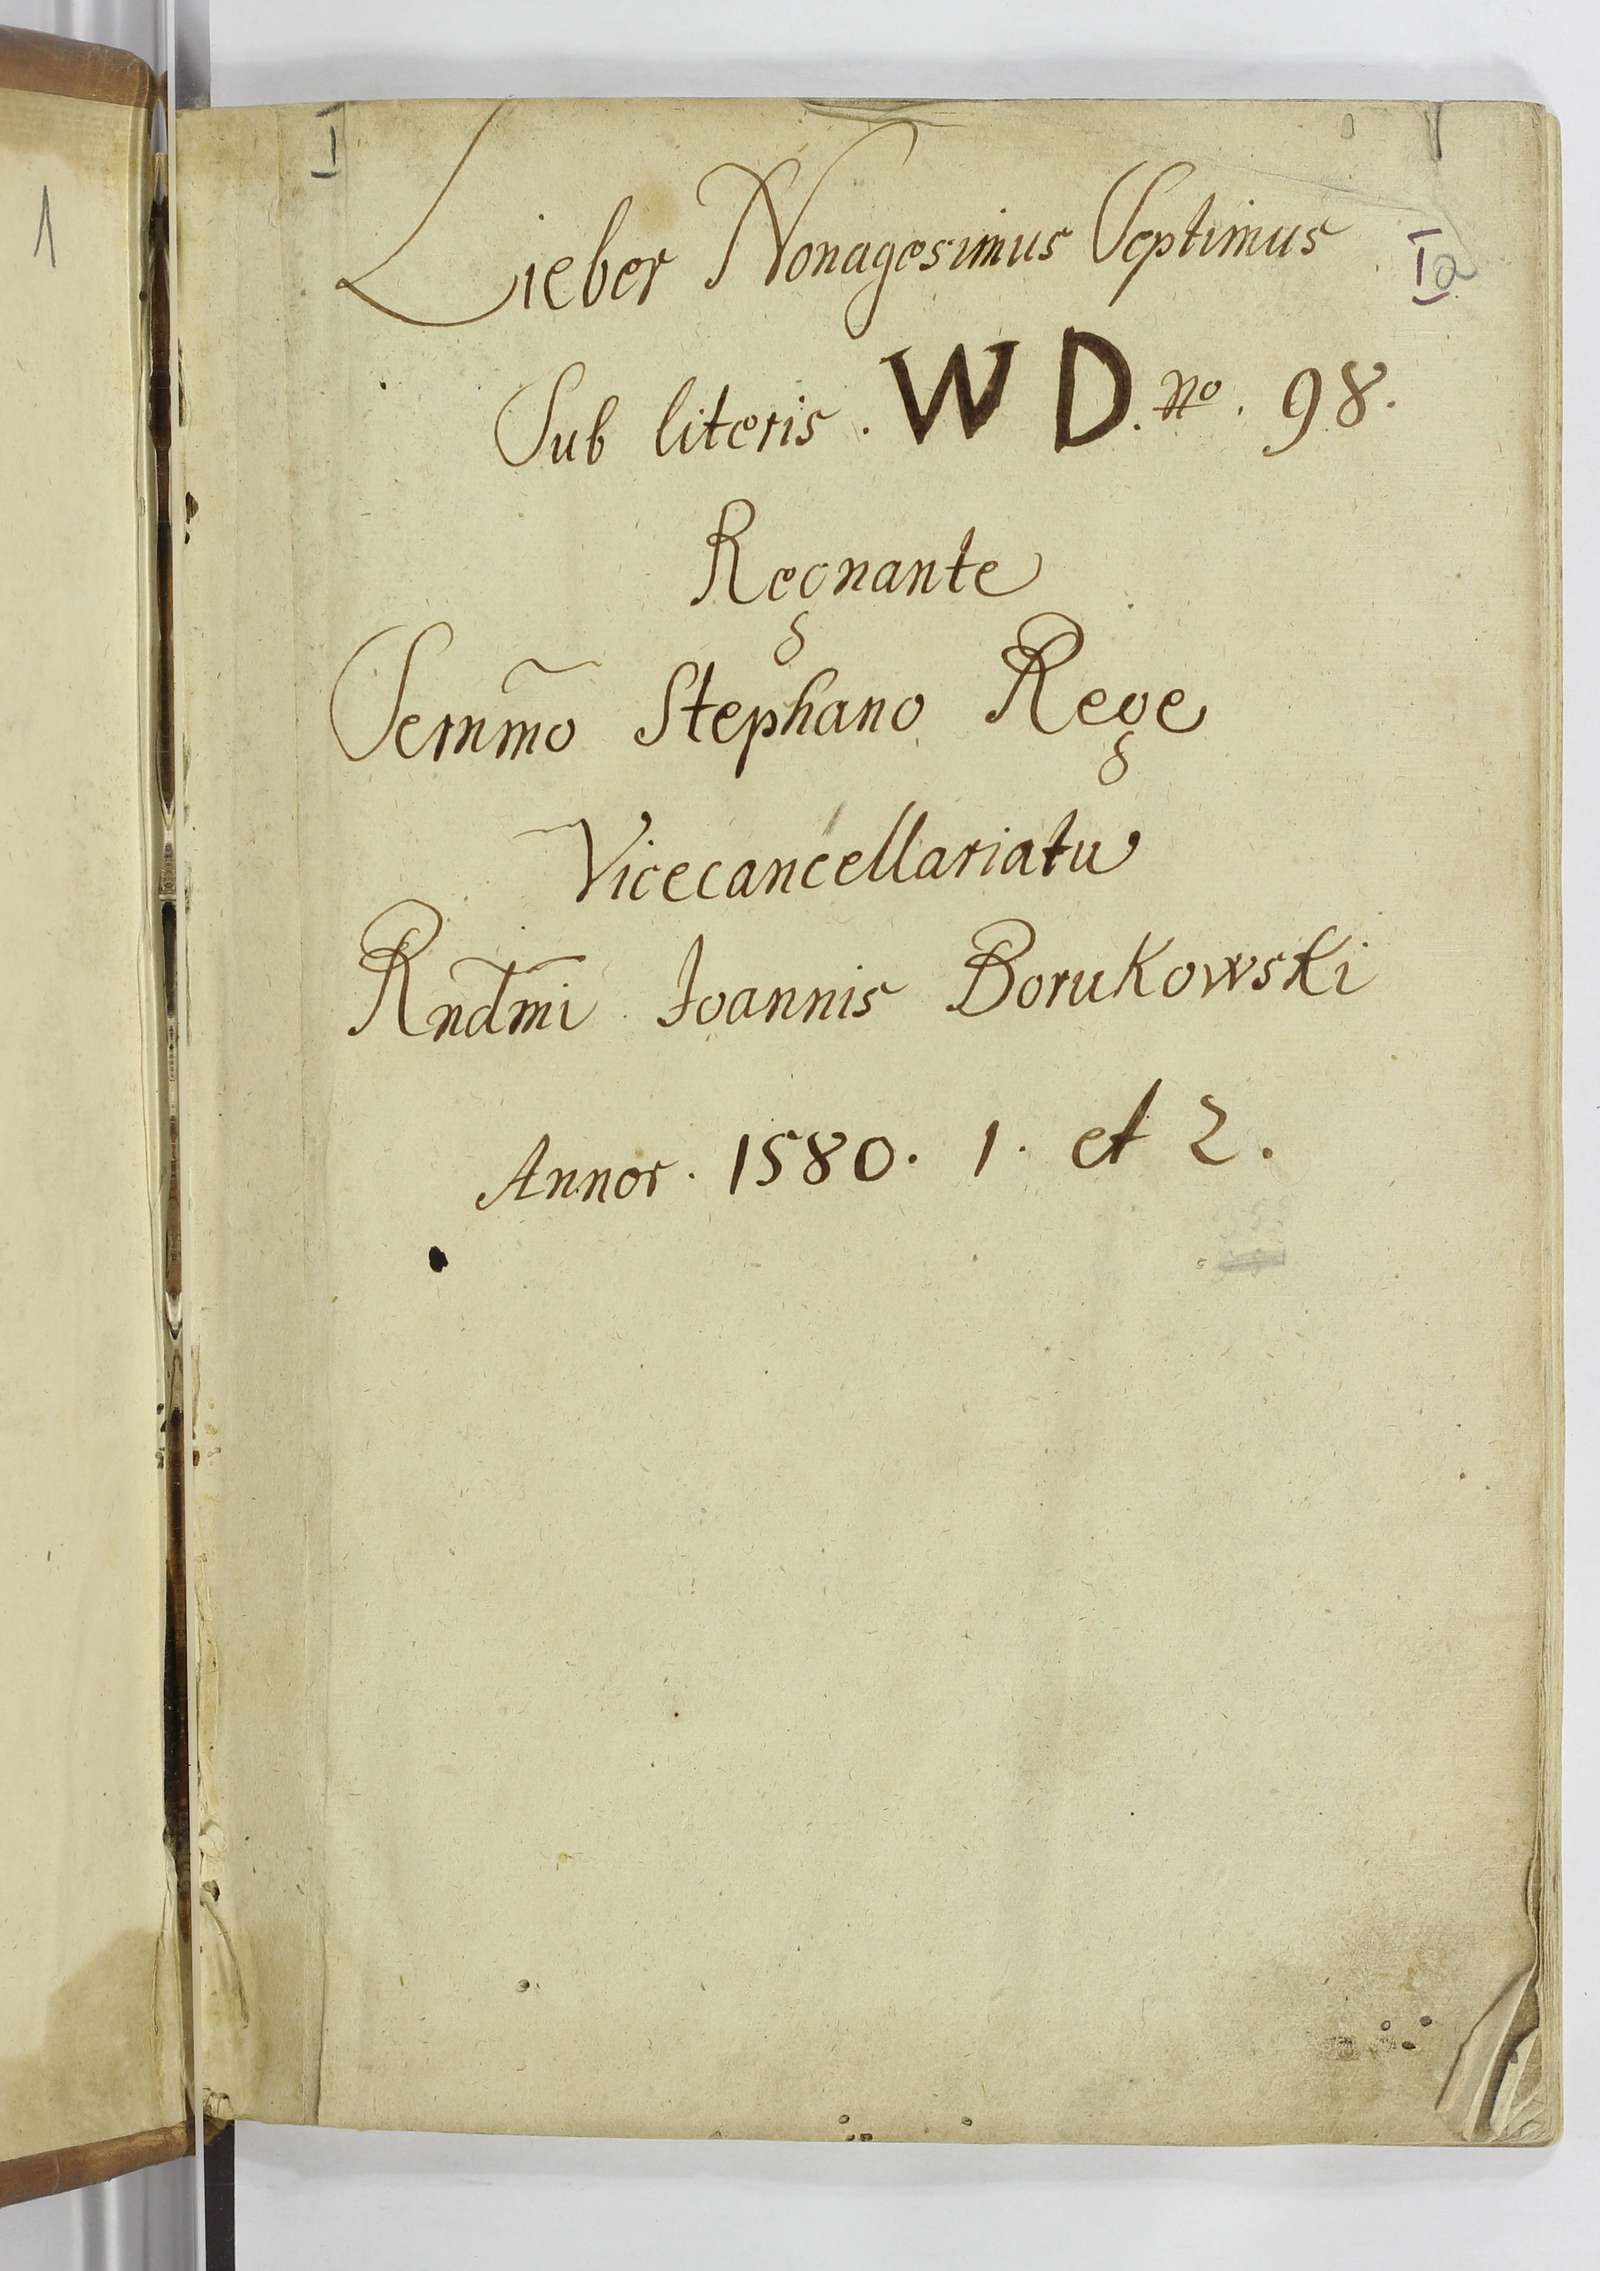 1
I
Lieber Nonagesimus Septimus
Ia
Sub literis. W D. No. 98.
Regnante
Sernmo Stephano Rege
Vicecancellariatu
Rndmi Joannis Borukowski
Annor. 1580. 1. et 2.